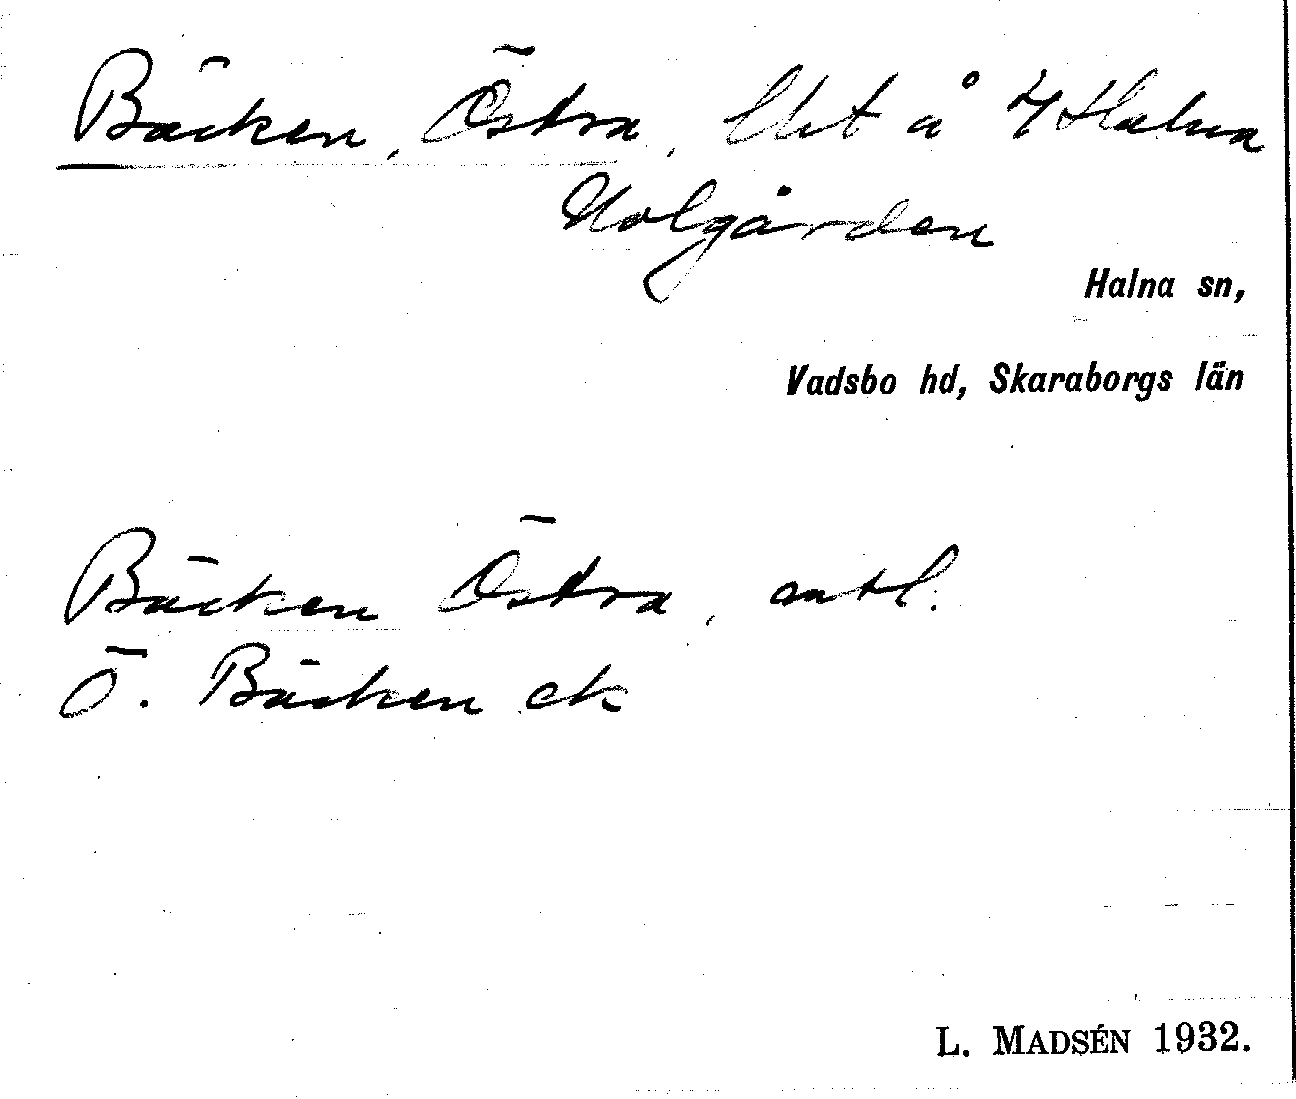 Bäcken, Östra, lht å 4 Halna
Holgården
Halna sn,
Vadsbo hd, Skaraborgs län
Bäcken Östra, mtl.
Ö. Bäcken ek
L. MADSÉN 1932.